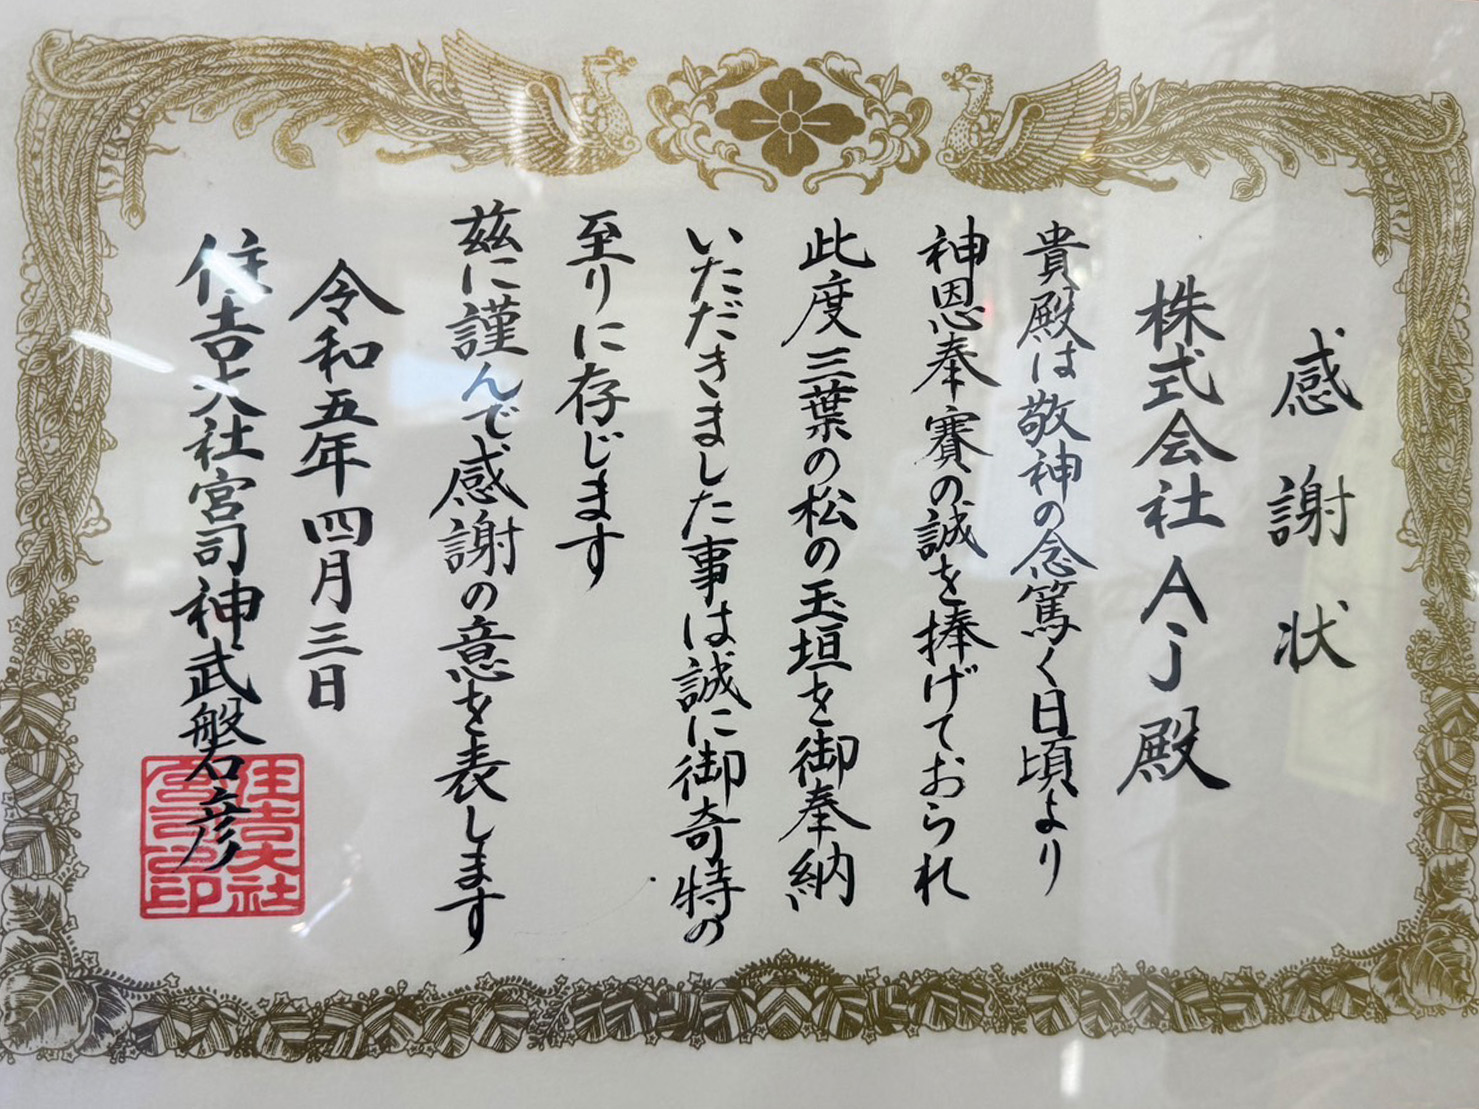 感謝状
株式会社Aj殿
貴殿は敬神の念篤く日頃より
神恩奉賽の誠を捧げておられ
此度三葉の松の玉垣を御奉納
いただきました事は誠に御奇特の
至りに存じます
茲に謹んで感謝の意を表します
令和五年四月三日
住吉大社宮司神武磐彦
住吉大社
宮司之印